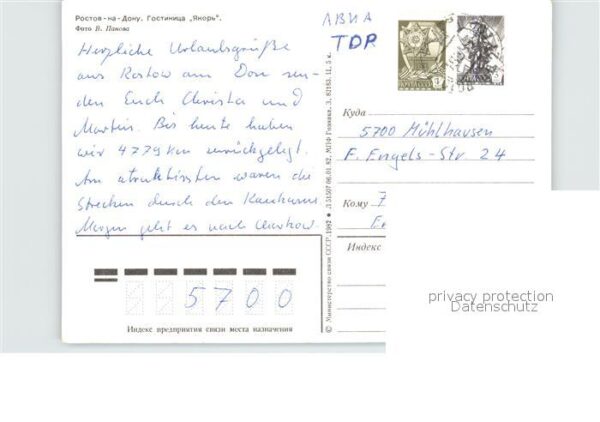 Ростов-на-Дону. Гостиница „Якорь".
Фото В. Панова
АВИА
TDR
Herzliche Urlaubsgrüße
aus Rostow am Don sen-
den Euch Christa und
Martin. Bis heute haben
wir 4779 km zurückgelegt.
Am atraktivsten waren die
Strecken durch den Kaukasus
Morgen geht es nach Charkow.
Куда
5700 Mühlhausen
F. Engels-Str. 24
Кому
Индекс
5700
Индекс предприятия связи места назначения
© Министерство связи СССР. 1982
06.01.82. МПФ Гознака. З.
privacy protection
Datenschutz